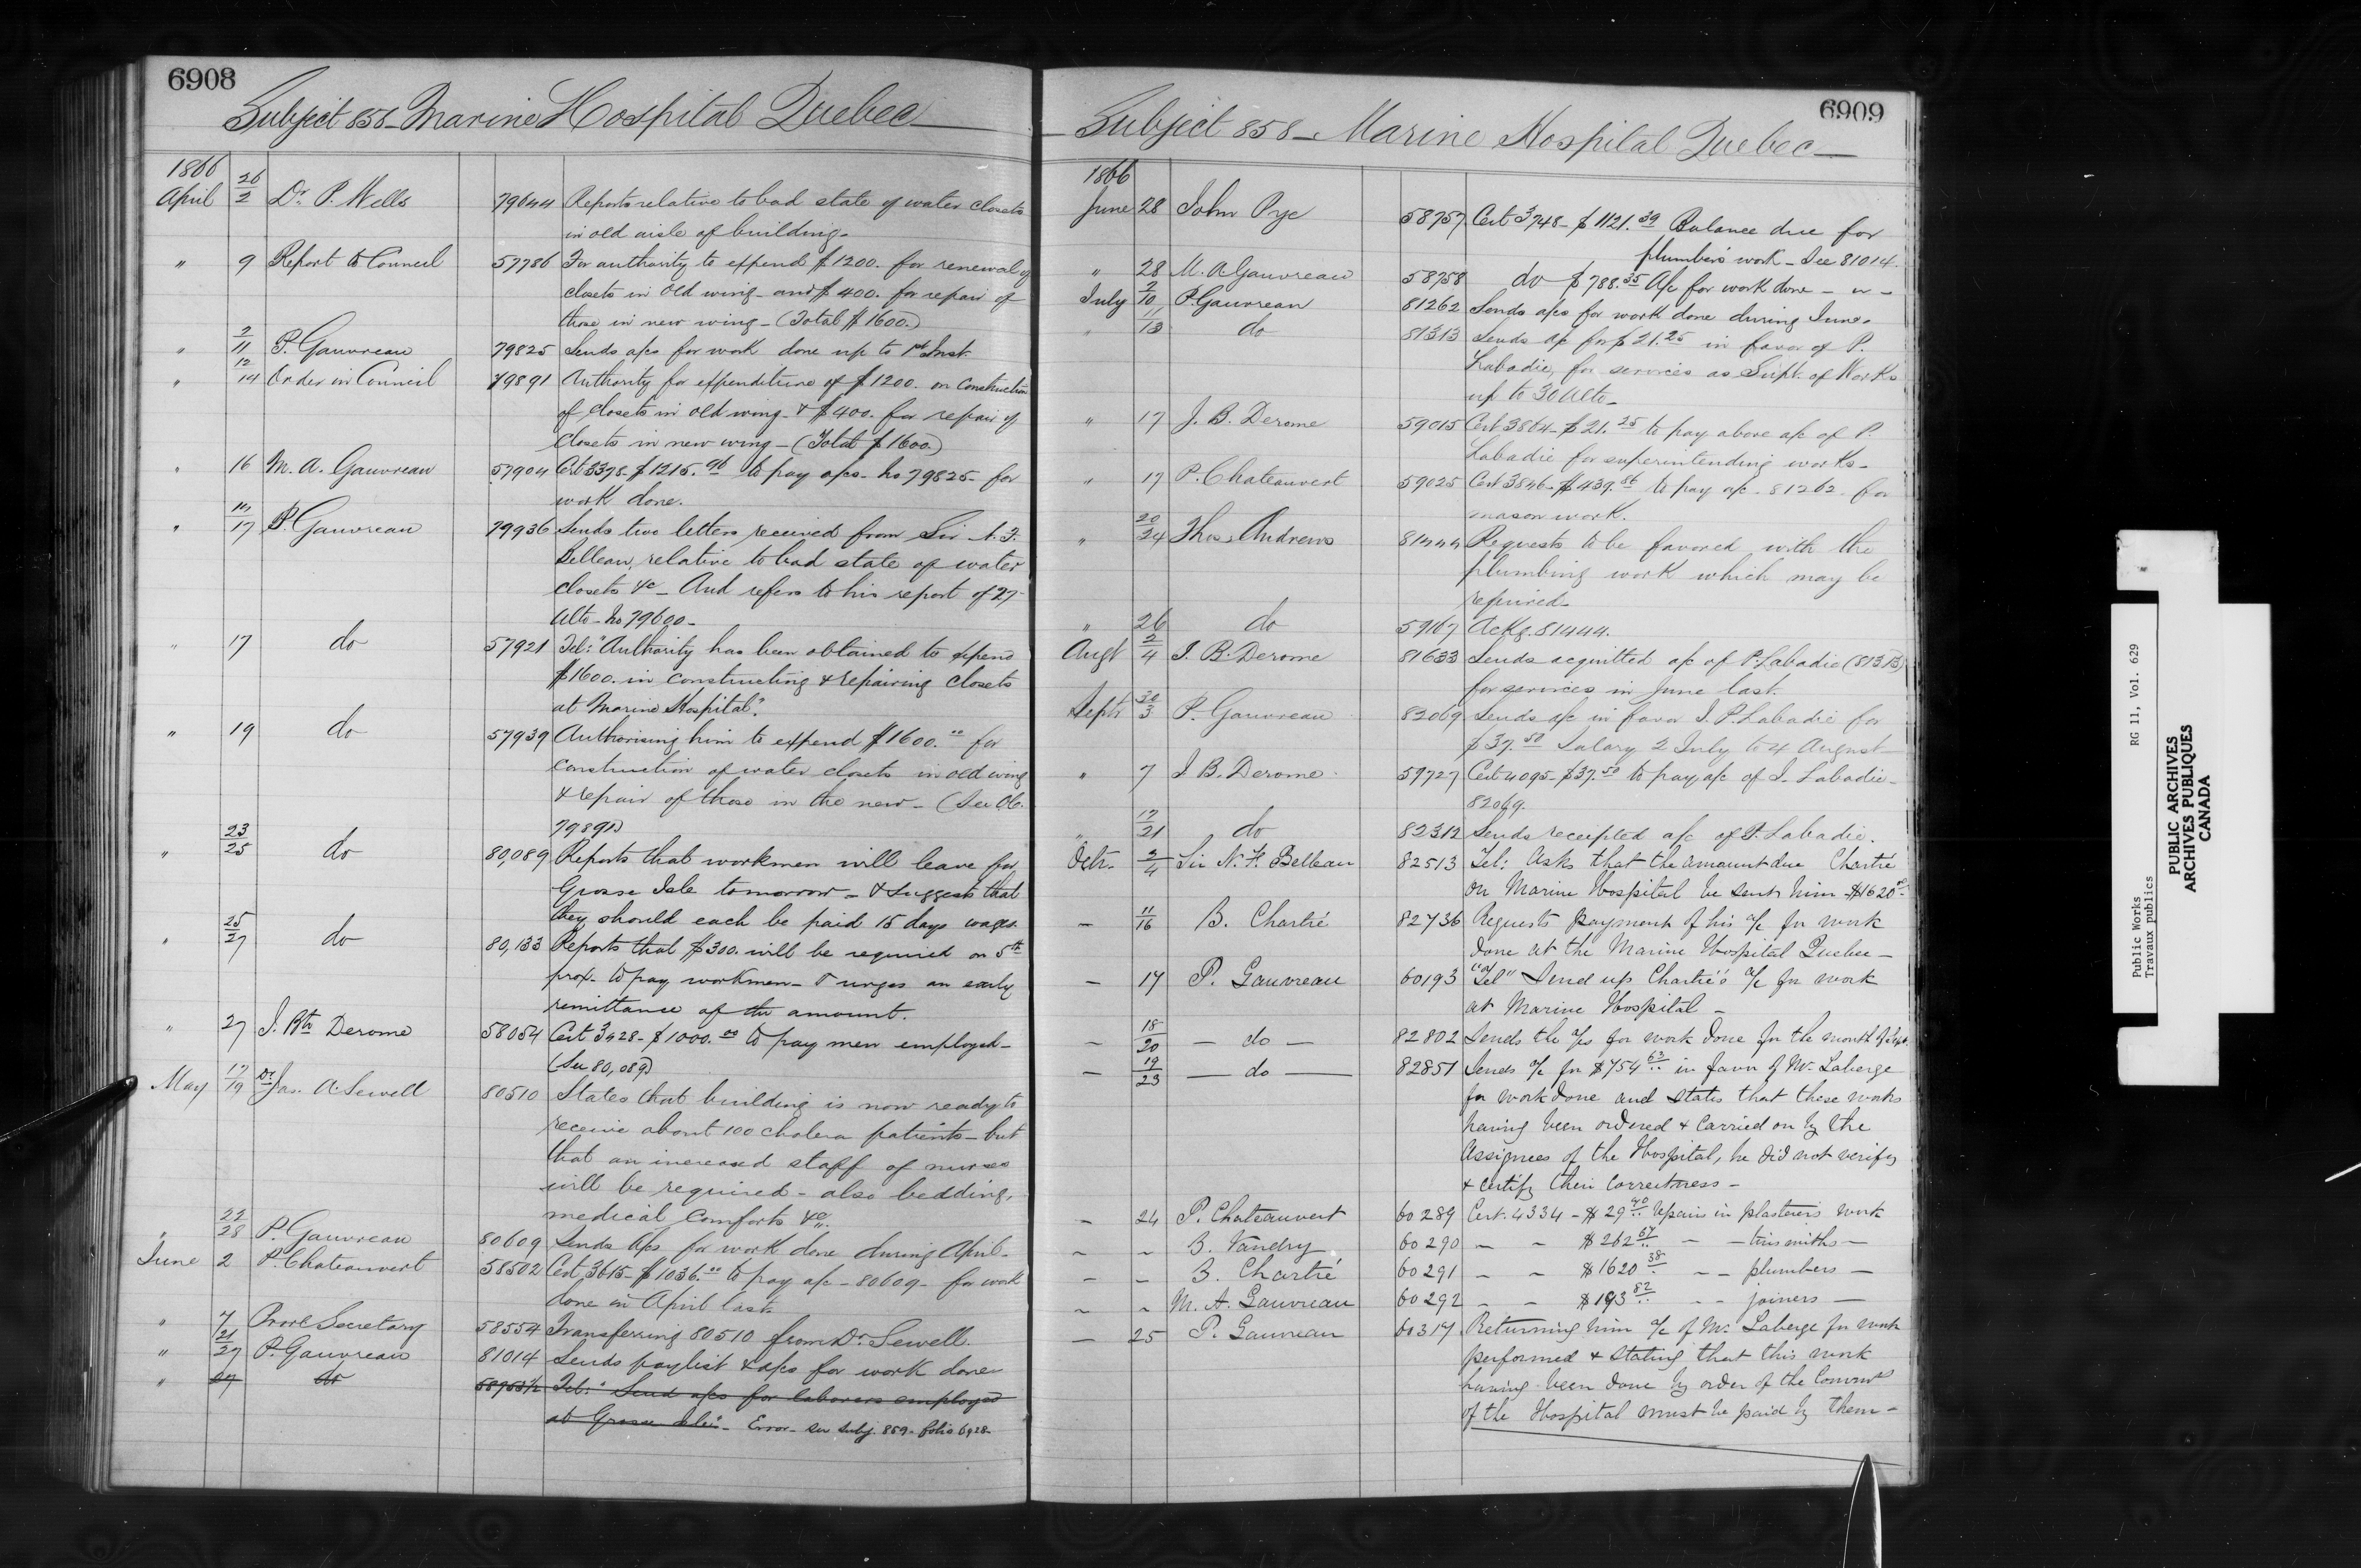 6908
Subject 858 - Marine Hospital Quebec
1866
April 26/2 Dr. P. Wells 79644 Reports relative to bad state of water closets
in old aisle of building.
" 9 Report to Council 57786 For authority to expend $1200. for renewal of
closets in old wing - and $400. for repair of
those in new wing - (Total $1600.)
" 9/11 P. Gauvreau 79825 Sends a/cs for work done up to 1st Inst.
" 12/14 Order in Council 79891 Authority for expenditure of $1200. on construction
of closets in old wing - & $400. for repair of
closets in new wing - (Total $1600.)
" 16 M. A. Gauvreau 57904 Cert 3378 - $1215.96 to pay a/cs - No 79825 - for
work done.
" 17 P. Gauvreau 79936 Sends two letters received from Sir N. F.
Belleau, relative to bad state of water
closets &c - And refers to his report of 27
Ulto - No 79600 -
" 17 do 57921 Tel: "Authority has been obtained to expend
$1600. in constructing & repairing closets
at Marine Hospital".
" 19 do 57939 Authorising him to expend $1600.00 for
construction of water closets in old wing
& repair of those in the new - (See OC.
79891)
" 23/25 do 80,089 Reports that workmen will leave for
Grosse Isle tomorrow - & suggests that
they should each be paid 15 days wages.
" 25/27 do 80,133 Reports that $300. will be required on 5th
prox - to pay workmen - & urges an early
remittance of the amount.
" 27 J. Bte Derome 58054 Cert 3428 - $1000.00 to pay men employed -
(See 80,089)
May 17/19 Dr. Jas. A. Sewell 80510 States that building is now ready to
receive about 100 cholera patients - but
that an increased staff of nurses
will be required - also bedding,
medical comforts &c.
" 22/28 P. Gauvreau 80609 Sends a/cs for work done during April -
June 2 P. Chateauvert 58502 Cert 3615 - $1036.00 to pay a/c - 80609 - for work
done in April last
" 7 Provl Secretary 58554 Transferring 80510 from Dr. Sewell.
" 21/27 P. Gauvreau 81014 Sends paylist & a/cs for work done
" 27 do 58753½ Tel: "Send a/cs for laborers employed
at Grosse Isle" - Error - see subj. 859 - folio 6928 -
6909
Subject 858 - Marine Hospital Quebec -
1866
June 28 John Pye 58757 Cert 3748 - $1121.39 Balance due for
plumber's work - See 81014.
" 28 M. A. Gauvreau 58758 do $788.35 A/c for work done - " -
July 2/10 P. Gauvreau 81262 Sends a/cs for work done during June -
" 11/13 do 81313 Sends a/c for $21.25 in favor of P.
Labadie, for services as Supt. of Works
up to 30 Ulto -
" 17 J. B. Derome 59015 Cert 3864 - $21.25 to pay above a/c of P.
Labadie for superintending works -
" 17 P. Chateauvert 59025 Cert 3846 - $439.86 to pay a/c - 81262 - for
mason work.
" 20/24 Thos. Andrews 81444 Requests to be favored with the
plumbing work which may be
required -
" 26 do 59167 Ackg. 81444.
Augt 2/4 J. B. Derome 81633 Sends acquitted a/c of P. Labadie (81313)
for services in June last.
Septr 30/3 P. Gauvreau 82069 Sends a/c in favor J. P. Labadie for
$37.50 Salary 2 July to 4 August
" 7 J. B. Derome - 59727 Cert 4095 - $37.50 to pay a/c of J. Labadie -
82069.
" 17/21 do 82312 Sends receipted a/c of P. Labadie.
Octr. 2/4 Sir N. F. Belleau 82513 Tel: Asks that the amount due Chartré
on Marine Hospital be sent him - $1620
- 11/16 B. Chartré 82736 Requests payment of his a/c for work
done at the Marine Hospital Quebec -
- 17 P. Gauvreau 60193 "Tel" Send up Chartré's a/c for work
at Marine Hospital -
- 18/20 - do - 82802 Sends the a/cs for work done for the month of Sept.
- 19/23 - do - 82851 Sends a/c for $754.63 in favor of Mr. Laberge
for work done and states that these works
having been ordered & carried on by the
Assignees of the Hospital, he did not verify
& certify their correctness -
- 24 P. Chateauvert 60289 Cert. 4334 - $29.40 repairs in plasterers work
- - B. Vandry 60290 - - $262.67 - - tinsmiths -
- - B. Chartré 60291 - - $1620.38 - - plumbers -
- - M. A. Gauvreau 60292 - - $193.82 - - joiners -
- 25 P. Gauvreau 60317 Returning him a/c of Mr. Laberge for work
performed & stating that this work
having been done by order of the Commrs
of the Hospital must be paid by them -
Public Works RG 11, Vol. 629
Travaux publics
PUBLIC ARCHIVES
ARCHIVES PUBLIQUES
CANADA